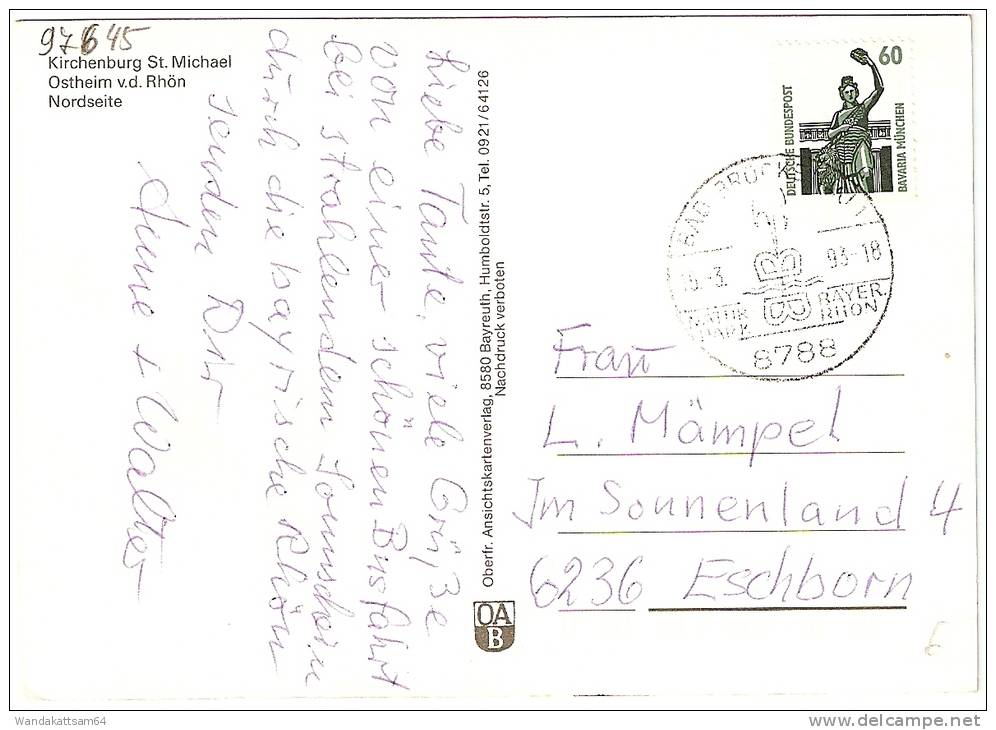 97645
Kirchenburg St. Michael
Ostheim v.d. Rhön
Nordseite
Liebe Tante, viele Grüße
von einer schönen Busfahrt
bei strahlendem Sonnschein
durch die bayrische Rhön
senden Dir
Anne + Walter
Oberfr. Ansichtskartenverlag, 8580 Bayreuth, Humboldtstr. 5, Tel. 0921/64126
Nachdruck verboten
OA
B
60
DEUTSCHE BUNDESPOST
BAVARIA MÜNCHEN
BAD BRÜCKENAU 1
.-3. 93-18
B
B
NATUR
PARK
BAYER.
RHÖN
8788
Frau
L. Mämpel
Im Sonnenland 4
6236 Eschborn
Wandakattsam64
delcampe.net